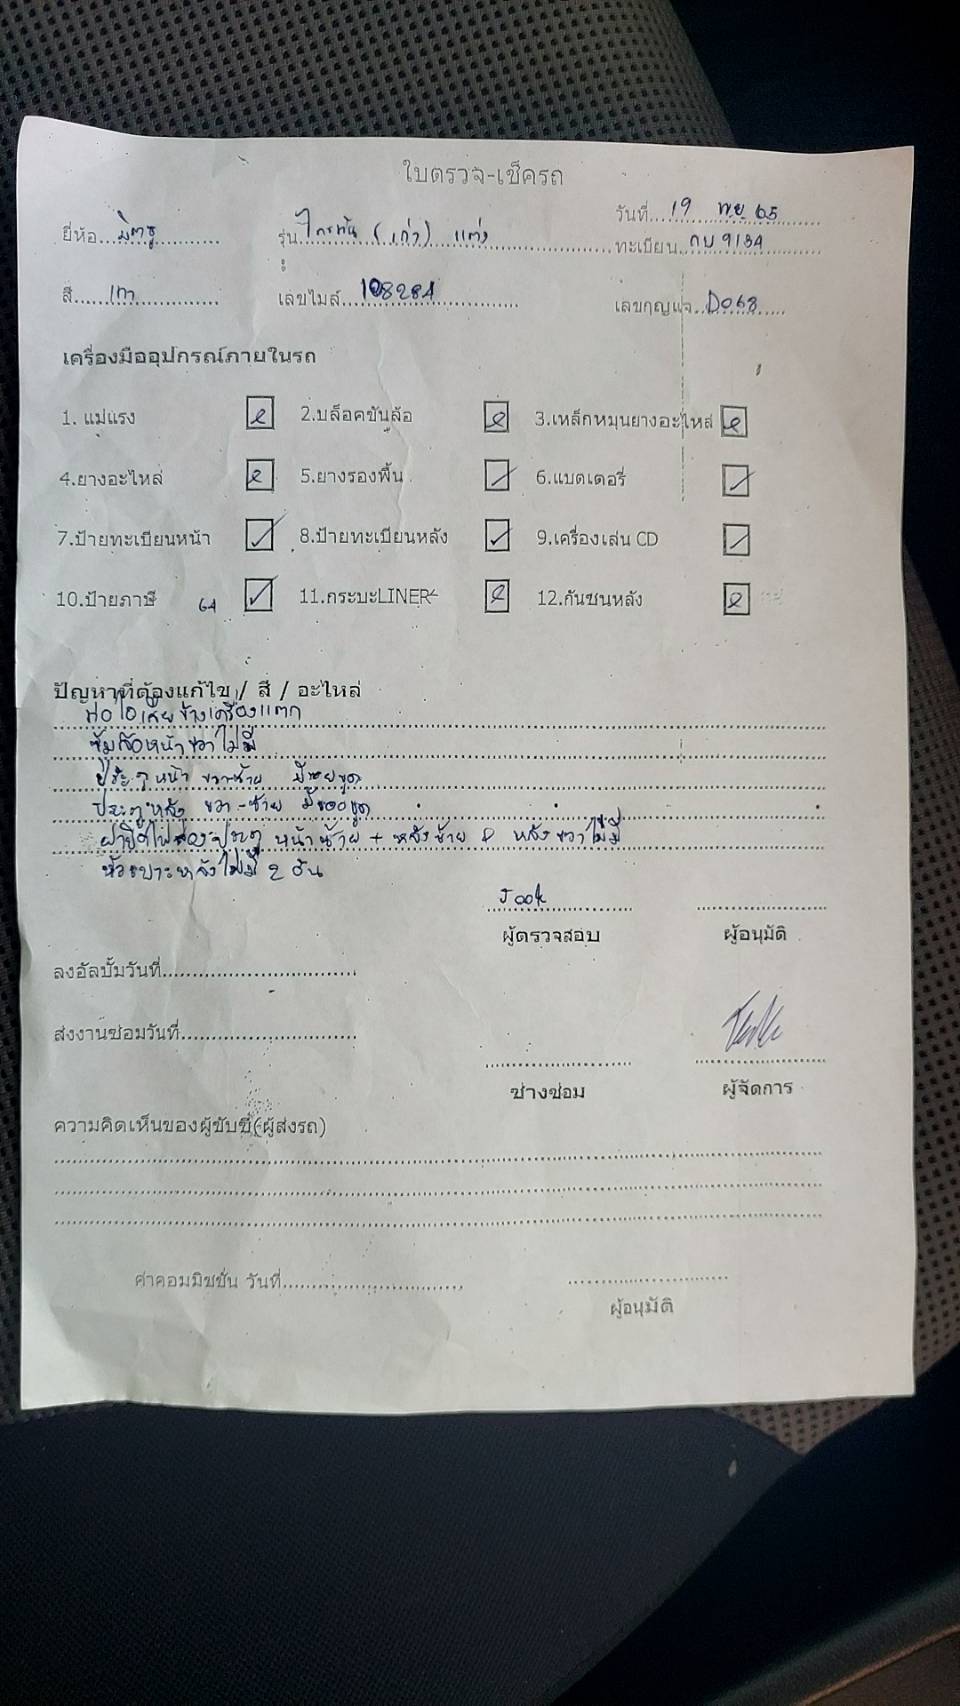 ใบตรวจ-เช็ครถ
วันที่ 19 พย 65
ยี่ห้อ มิตซู รุ่น ไทรทัน (เก่า) แต่ง ทะเบียน กบ 9134
สี เทา เลขไมล์ 108284 เลขกุญแจ D068
เครื่องมืออุปกรณ์ภายในรถ
1. แม่แรง 2.บล็อคขันล้อ 3.เหล็กหมุนยางอะไหล่
4.ยางอะไหล่ 5.ยางรองพื้น 6.แบตเตอรี่
7.ป้ายทะเบียนหน้า 8.ป้ายทะเบียนหลัง 9.เครื่องเล่น CD
10.ป้ายภาษี 64 11.กระบะLINER 12.กันชนหลัง
ปัญหาที่ต้องแก้ไข / สี / อะไหล่
ท่อไอเสียข้างเครื่องแตก
ซุ้มล้อหน้าขวาไม่มี
ประตูหน้า ขวา-ซ้าย มีรอยขูด
ประตูหลัง ขวา-ซ้าย มีรอยขูด
ฝาปิดไฟส่องประตู หน้าซ้าย + หลังซ้าย & หลังขวาไม่มี
หัวเบาะหลังไม่มี 2 อัน
Jook
ผู้ตรวจสอบ ผู้อนุมัติ
ลงอัลบั้มวันที่
ส่งงานซ่อมวันที่
ช่างซ่อม ผู้จัดการ
ความคิดเห็นของผู้ขับขี่(ผู้ส่งรถ)
ค่าคอมมิชชั่น วันที่
ผู้อนุมัติ